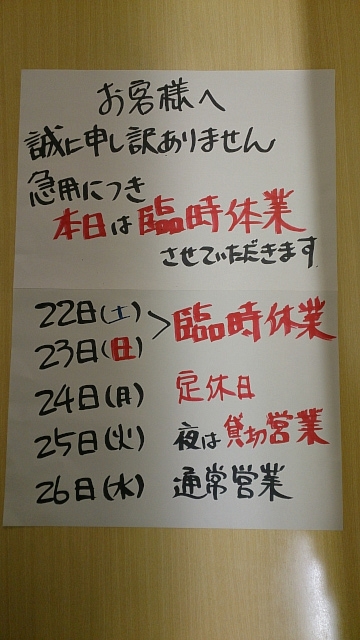 お客様へ
誠に申し訳ありません
急用につき
本日は臨時休業
させていただきます
22日(土)
23日(日) > 臨時休業
24日(月) 定休日
25日(火) 夜は貸切営業
26日(水) 通常営業